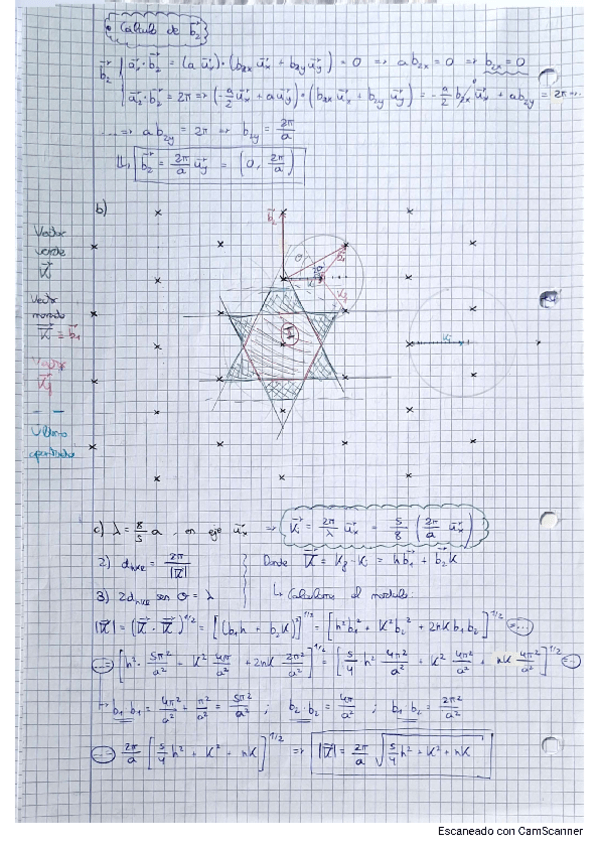 • Cálculo de b₂→
b₂→ { a₁→·b₂→ = (a uₓ→)·(b₂ₓ uₓ→ + b₂y uy→) = 0 ⇒ a b₂ₓ = 0 ⇒ b₂ₓ = 0
a₂→·b₂→ = 2π ⇒ (-a/2 uₓ→ + a uy→)·(b₂ₓ uₓ→ + b₂y uy→) = -a/2 b₂ₓ uₓ→ + a b₂y = 2π ...
... ⇒ a b₂y = 2π ⇒ b₂y = 2π/a
b₂→ = 2π/a uy→ = (0, 2π/a)
b)
b₂→
Vector
verde
Vector
morado
K→ = b₁→
Vector
Kf→
Último
apartado
θ
Kf
Ki
c) λ = 8/5 a, en eje uₓ→ ⇒ Ki→ = 2π/λ uₓ→ = 5/8 (2π/a uₓ→)
2) dhkl = 2π/|K→| Donde K→ = Kf - Ki = hb₁→ + b₂→K
3) 2dhkl sen θ = λ ↳ Calculamos el modulo:
|K→| = (K→·K→)^1/2 = [(b₁h + b₂K)²]^1/2 = [h²b₁² + K²b₂² + 2hK b₁b₂]^1/2 = ...
... = [h²·5π²/a² + K² 4π²/a² + 2hK 2π²/a²]^1/2 = [5/4 h² 4π²/a² + K² 4π²/a² + hK 4π²/a²]^1/2 = ...
↳ b₁·b₁ = 4π²/a² + π²/a² = 5π²/a² ; b₂·b₂ = 4π/a² ; b₁·b₂ = 2π²/a²
... = 2π/a [5/4 h² + K² + hK]^1/2 ⇒ |K→| = 2π/a √(5/4 h² + K² + hK)
Escaneado con CamScanner